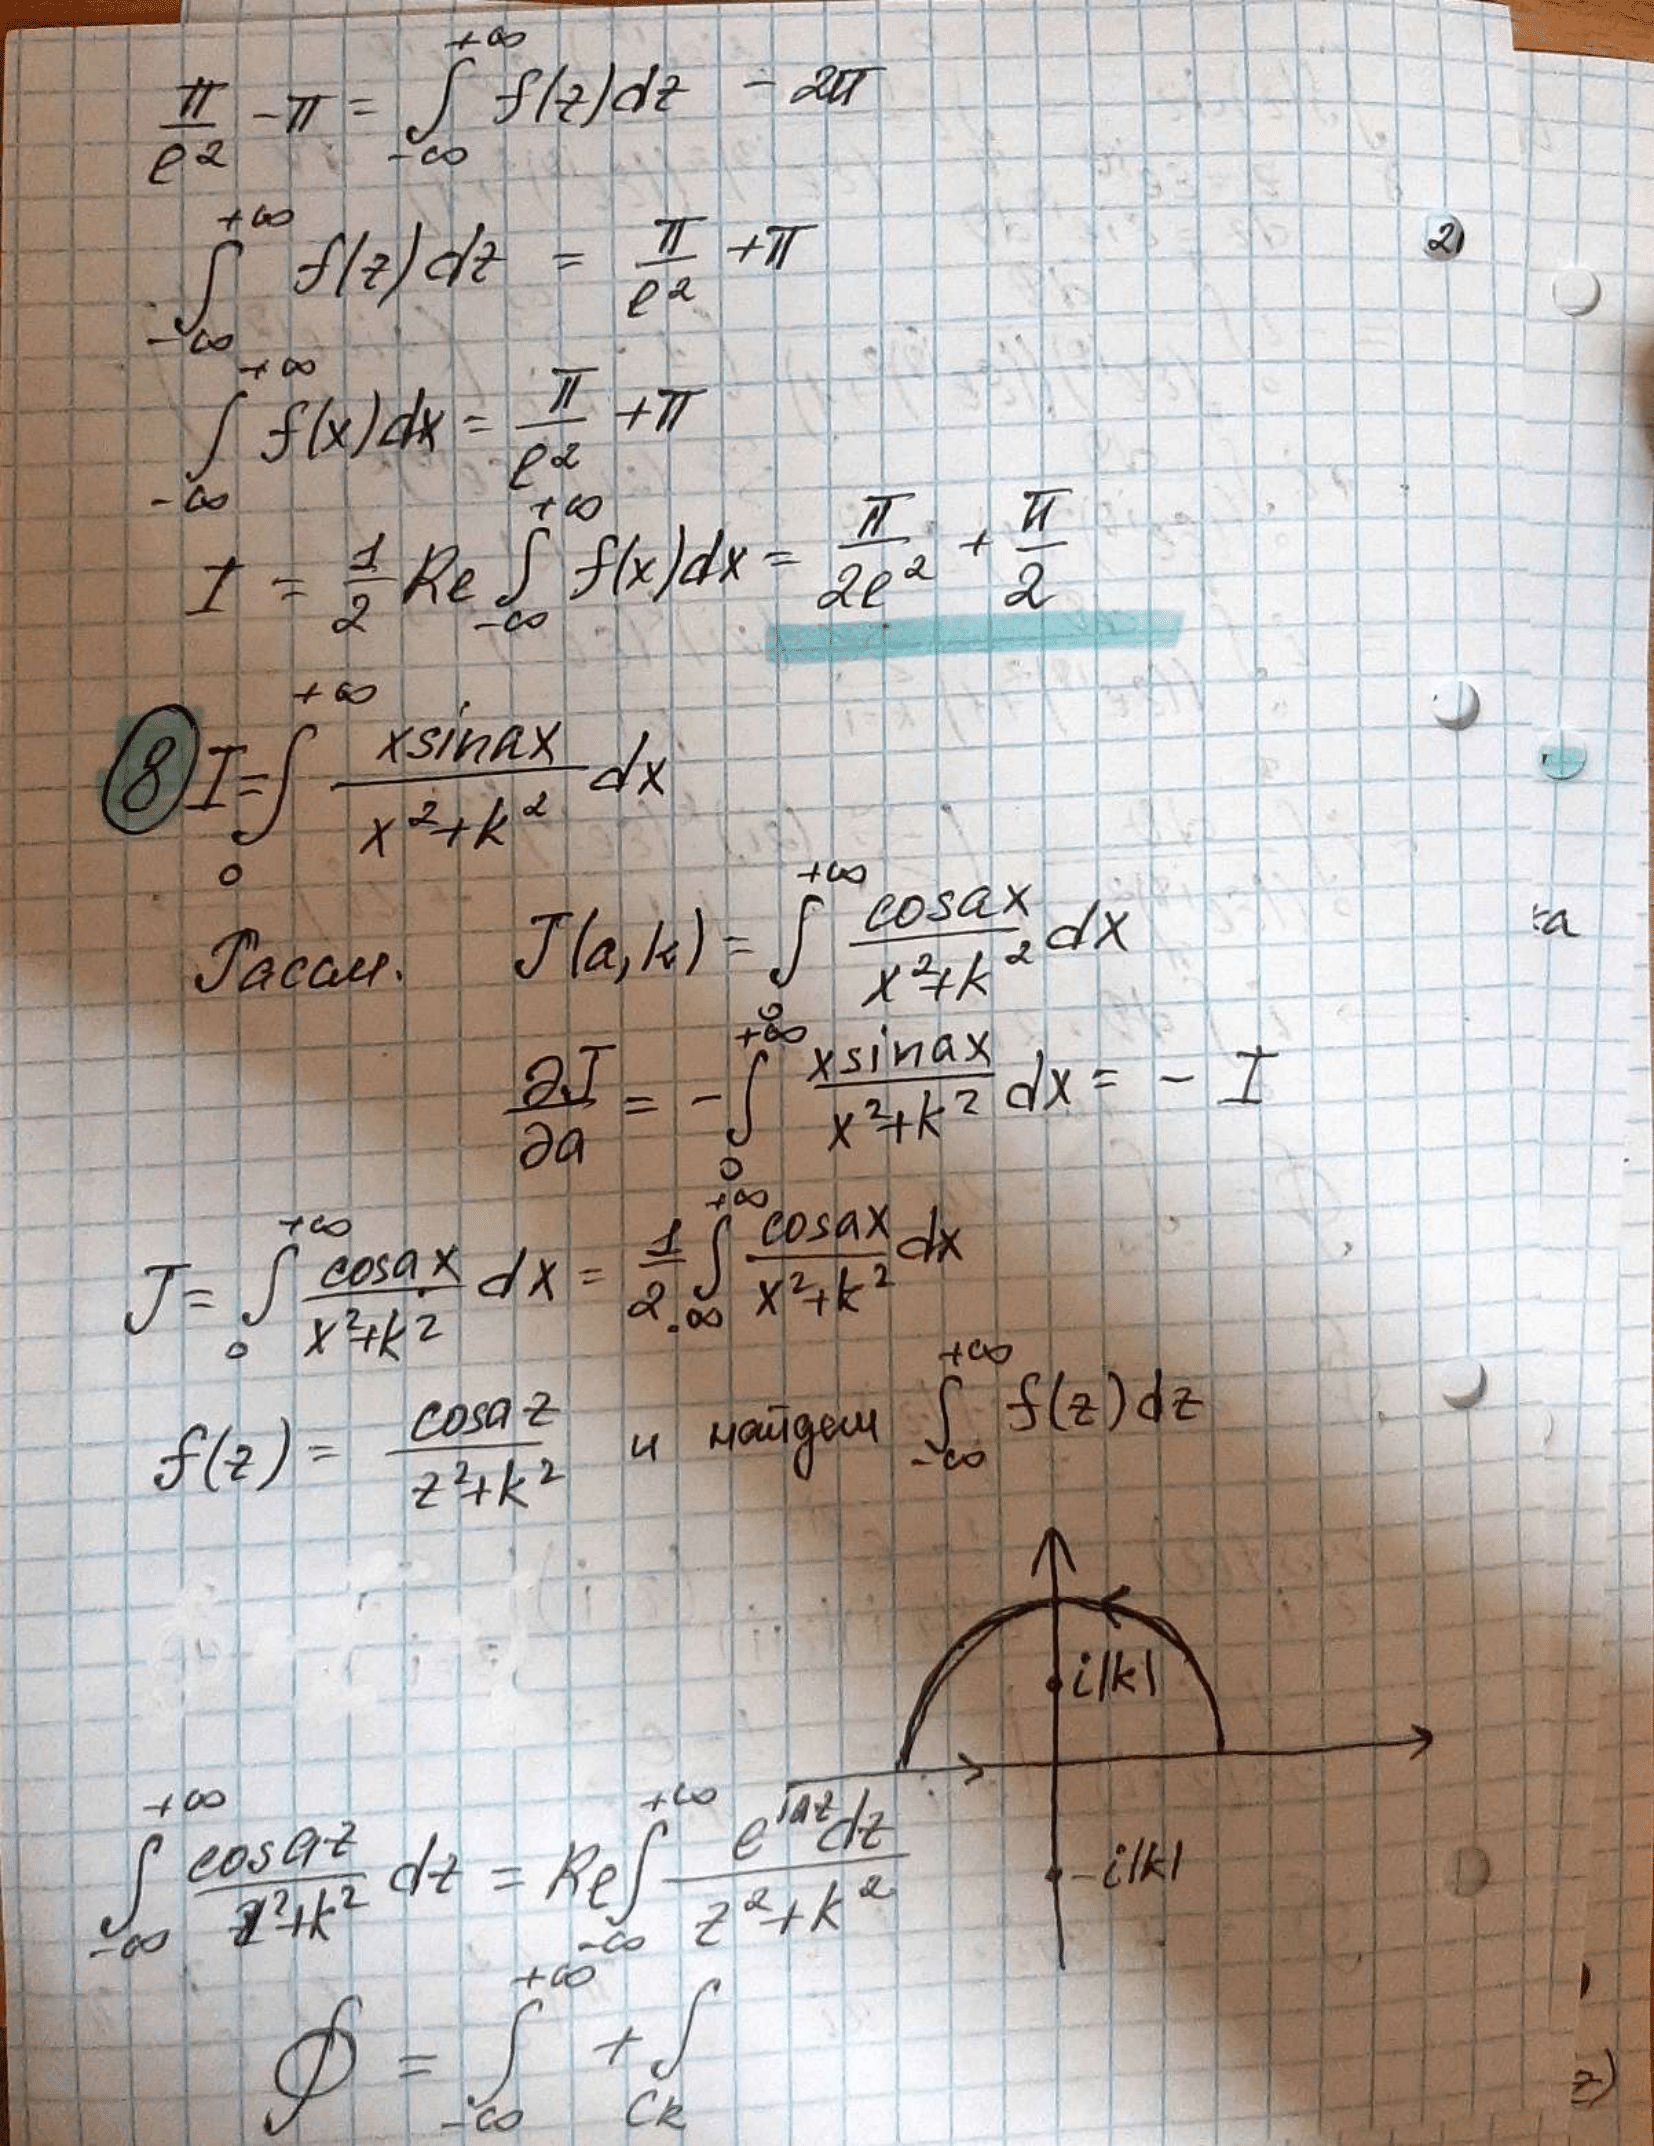 π/e² - π = ∫_{-∞}^{+∞} f(z)dz - 2π
∫_{-∞}^{+∞} f(z)dz = π/e² + π
∫_{-∞}^{+∞} f(x)dx = π/e² + π
I = 1/2 Re ∫_{-∞}^{+∞} f(x)dx = π/2e² + π/2
8 I = ∫_0^{+∞} xsinax/(x²+k²) dx
Рассм. J(a,k) = ∫_0^{+∞} cosax/(x²+k²) dx
∂J/∂a = - ∫_0^{+∞} xsinax/(x²+k²) dx = - I
J = ∫_0^{+∞} cosax/(x²+k²) dx = 1/2 ∫_{-∞}^{+∞} cosax/(x²+k²) dx
f(z) = cosaz/(z²+k²) и найдем ∫_{-∞}^{+∞} f(z)dz
i|k|
-i|k|
∫_{-∞}^{+∞} cosaz/(z²+k²) dz = Re ∫_{-∞}^{+∞} e^{iaz}dz/(z²+k²)
∮ = ∫_{-∞}^{+∞} + ∫_{CR}
2)
ка
z)